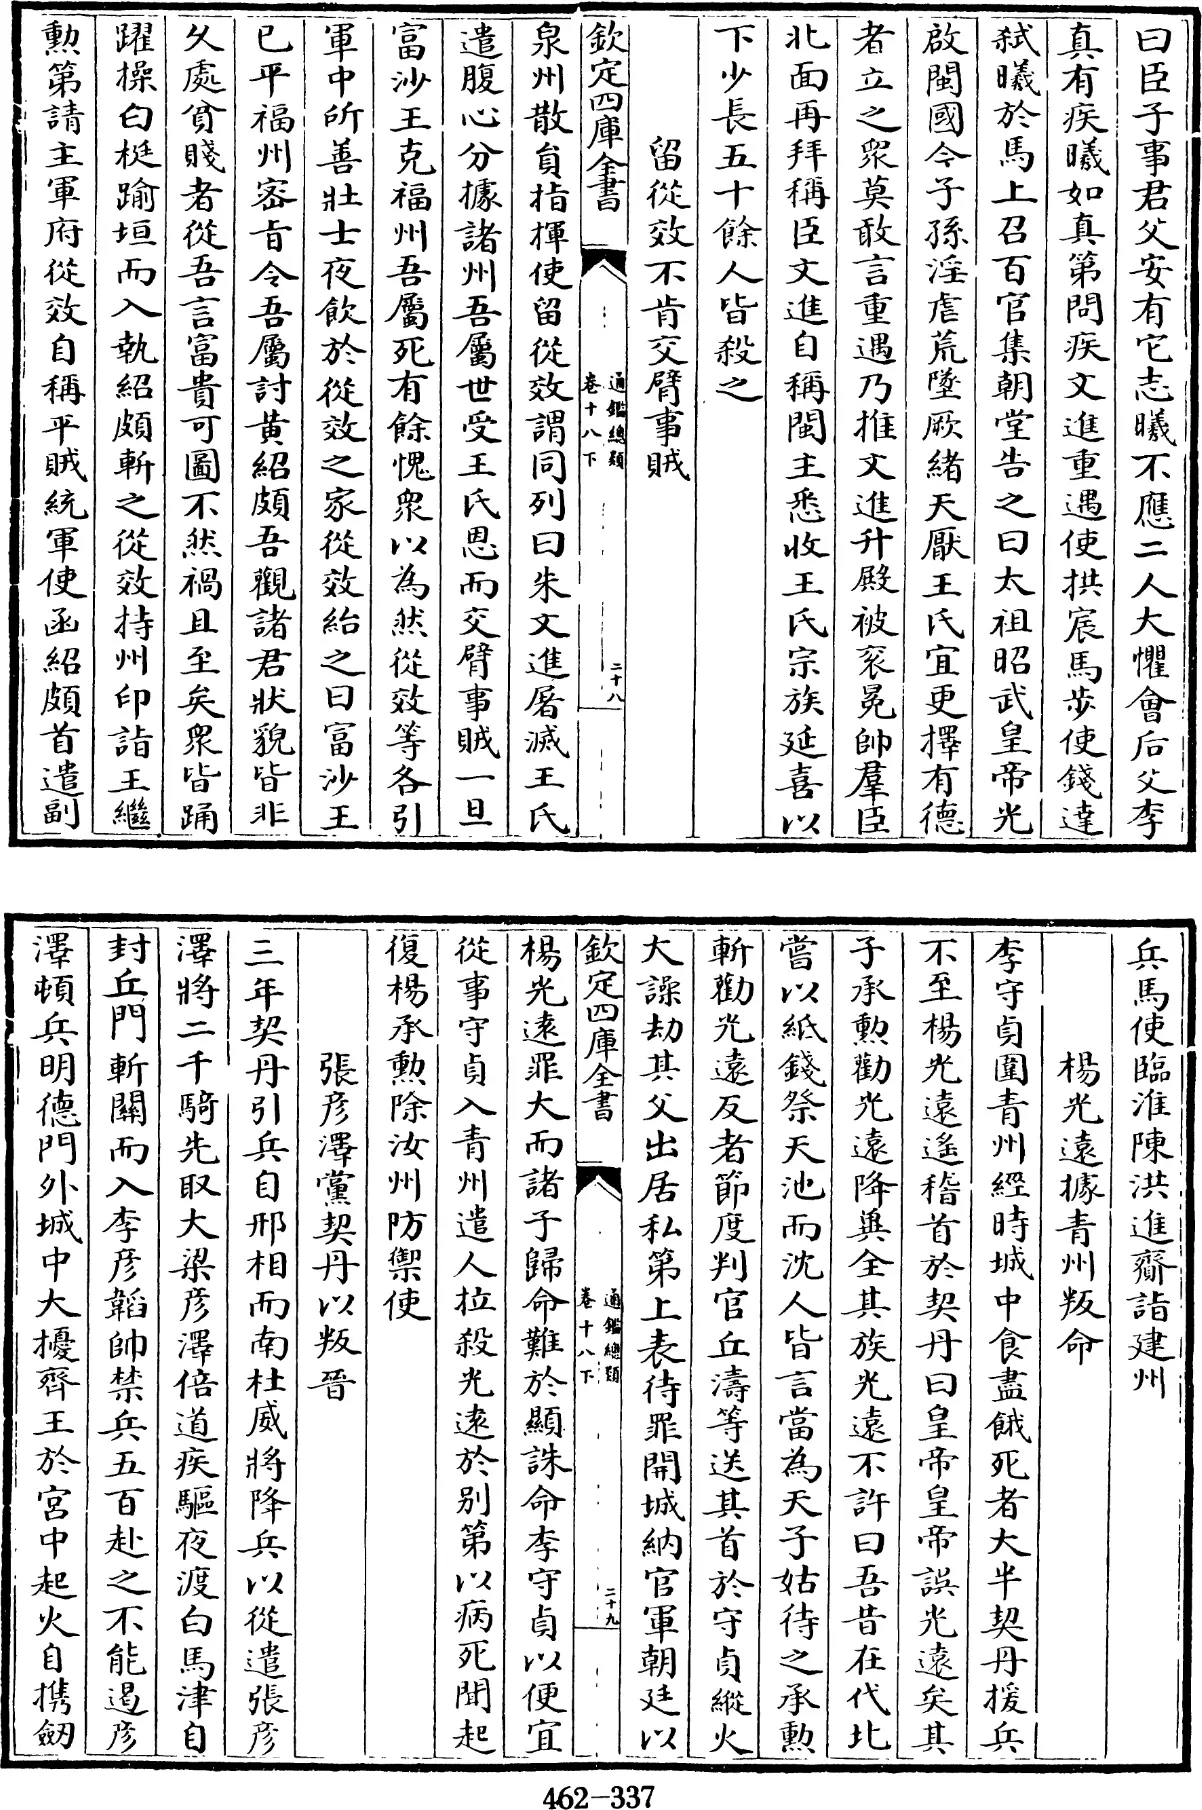 曰臣子事君父安有它志曦不應二人大懼會后父李
真有疾曦如真第問疾文進重遇使拱宸馬步使錢達
弑曦於馬上召百官集朝堂告之曰太祖昭武皇帝光
啟閩國今子孫淫虐荒墜厥緒天厭王氏宜更擇有德
者立之衆莫敢言重遇乃推文進升殿被衮冕帥羣臣
北面再拜稱臣文進自稱閩主悉收王氏宗族延喜以
下少長五十餘人皆殺之
留從效不肯交臂事賊
欽定四庫全書
通鑑總類
卷十八下
二十八
泉州散員指揮使留從效謂同列曰朱文進屠滅王氏
遣腹心分據諸州吾屬世受王氏恩而交臂事賊一旦
富沙王克福州吾屬死有餘愧衆以為然從效等各引
軍中所善壯士夜飲於從效之家從效紿之曰富沙王
已平福州密旨令吾屬討黃紹頗吾觀諸君狀貌皆非
久處貧賤者從吾言富貴可圖不然禍且至矣衆皆踊
躍操白梃踰垣而入執紹頗斬之從效持州印詣王繼
勲第請主軍府從效自稱平賊統軍使函紹頗首遣副
兵馬使臨淮陳洪進齎詣建州
楊光遠據青州叛命
李守貞圍青州經時城中食盡餓死者大半契丹援兵
不至楊光遠遙稽首於契丹曰皇帝皇帝誤光遠矣其
子承勲勸光遠降兾全其族光遠不許曰吾昔在代北
嘗以紙錢祭天池而沈人皆言當為天子姑待之承勲
斬勸光遠反者節度判官丘濤等送其首於守貞縱火
大譟劫其父出居私第上表待罪開城納官軍朝廷以
欽定四庫全書
通鑑總類
卷十八下
二十九
楊光遠罪大而諸子歸命難於顯誅命李守貞以便宜
從事守貞入青州遣人拉殺光遠於别第以病死聞起
復楊承勲除汝州防禦使
張彦澤黨契丹以叛晉
三年契丹引兵自邢相而南杜威將降兵以從遣張彦
澤將二千騎先取大梁彦澤倍道疾驅夜渡白馬津自
封丘門斬關而入李彦韜帥禁兵五百赴之不能遏彦
澤頓兵明德門外城中大擾齊王於宮中起火自携劒
462-337